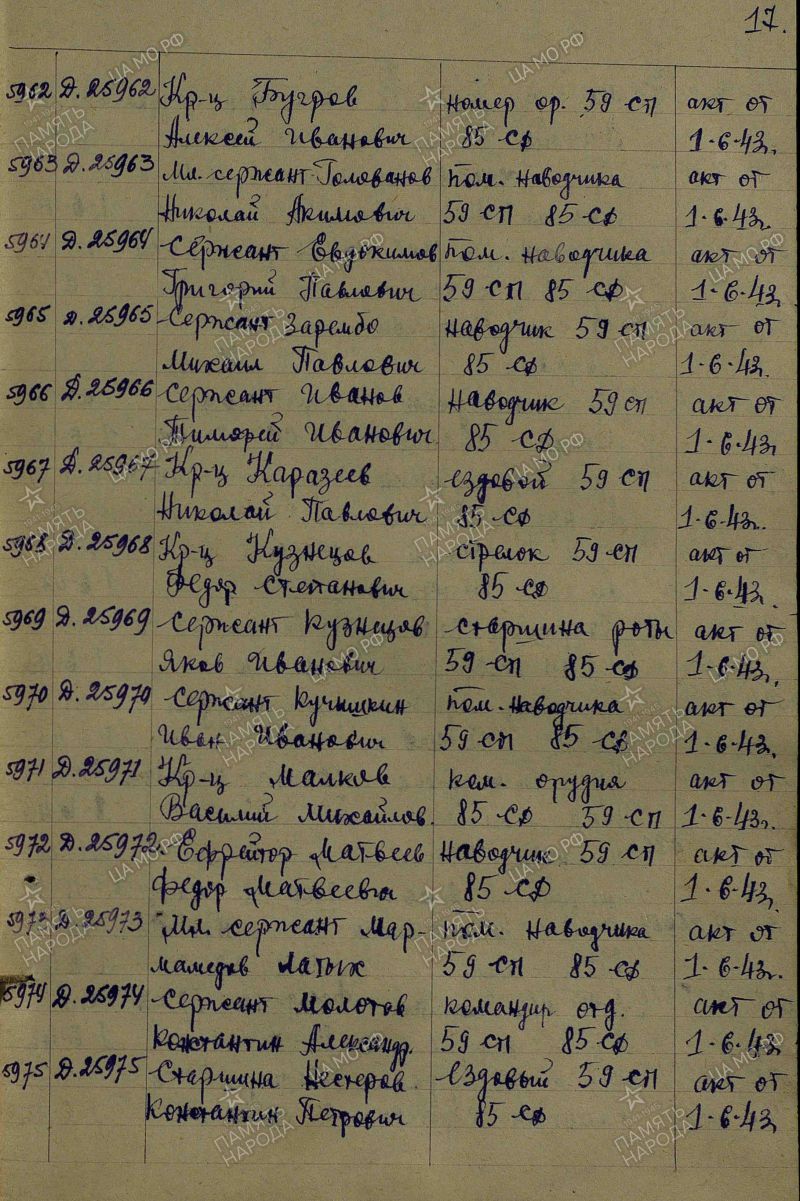 17.
5962 Д. 25962 Кр-ц Бугров номер ор. 59 сп акт от
Алексей Иванович 85 сд 1-6-43г.
5963 Д. 25963 Мл. сержант Голованов Пом. наводчика акт от
Николай Акимович 59 сп 85 сд 1-6-43г.
5964 Д. 25964 Сержант Евдокимов Пом. наводчика акт от
Григорий Павлович 59 сп 85 сд 1-6-43г
5965 Д. 25965 Сержант Зарембо наводчик 59 сп акт от
Михаил Павлович 85 сд 1-6-43г.
5966 Д. 25966 Сержант Иванов наводчик 59 сп акт от
Тимофей Иванович 85 сд 1-6-43г
5967 Д. 25967 Кр-ц Каразеев ездовой 59 сп акт от
Николай Павлович 85 сд 1-6-43г.
5968 Д. 25968 Кр-ц Кузнецов стрелок 59 сп акт от
Федор Степанович 85 сд 1-6-43г.
5969 Д. 25969 Сержант Кузнецов старшина роты акт от
Яков Иванович 59 сп 85 сд 1-6-43г.
5970 Д. 25970 Сержант Кучышкин Пом. наводчика акт от
Иван Иванович 59 сп 85 сд 1-6-43г.
5971 Д. 25971 Кр-ц Малков ком. орудия акт от
Василий Михайлов. 85 сд 59 сп 1-6-43г.
5972 Д. 25972. Ефрейтор Матвеев наводчик 59 сп акт от
Федор Матвеевич 85 сд 1-6-43г.
5973 Д. 25973 Мл. сержант Мар- Пом. наводчика акт от
мамедов Латых 59 сп 85 сд 1-6-43г.
5974 Д. 25974 Сержант Молотов командир отд. акт от
Константин Александр. 59 сп 85 сд 1-6-43г
5975 Д. 25975 Старшина Нестеров ездовый 59 сп акт от
Константин Петрович 85 сд 1-6-43г
ПАМЯТЬ НАРОДА
ЦА МО РФ